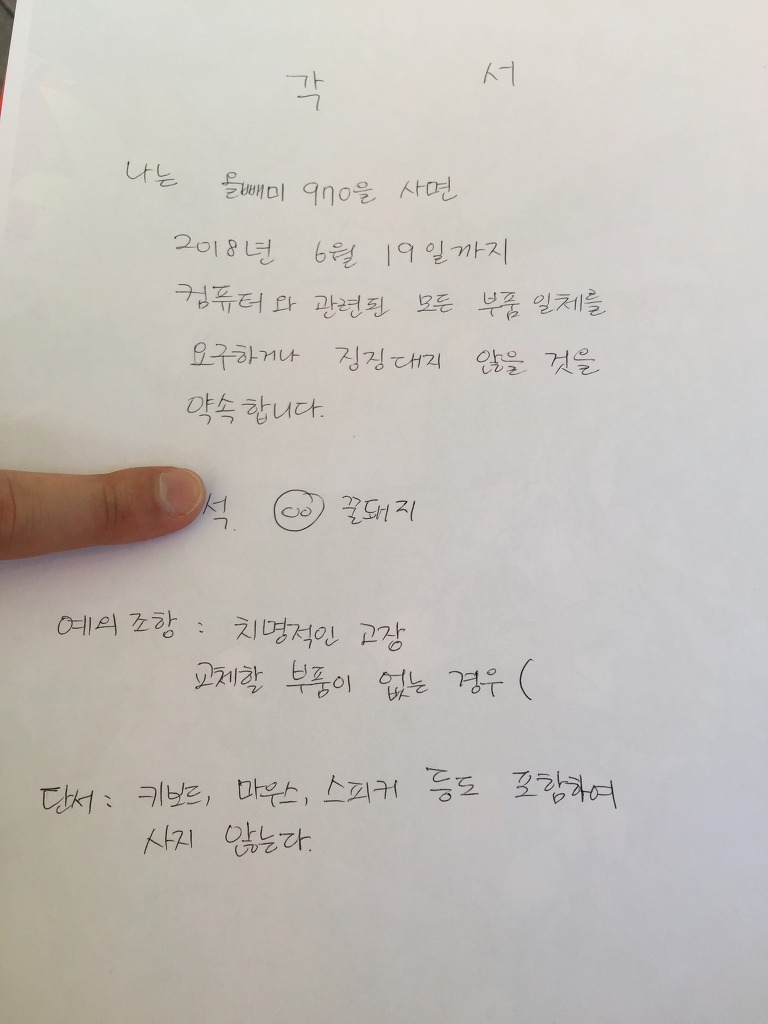 각 서
나는 올빼미 970을 사면
2018년 6월 19일까지
컴퓨터와 관련된 모든 부품 일체를
요구하거나 징징대지 않을 것을
약속합니다.
석. 꿀돼지
예의 조항 : 치명적인 고장
교체할 부품이 없는 경우 (
단서 : 키보드, 마우스, 스피커 등도 포함하여
사지 않는다.